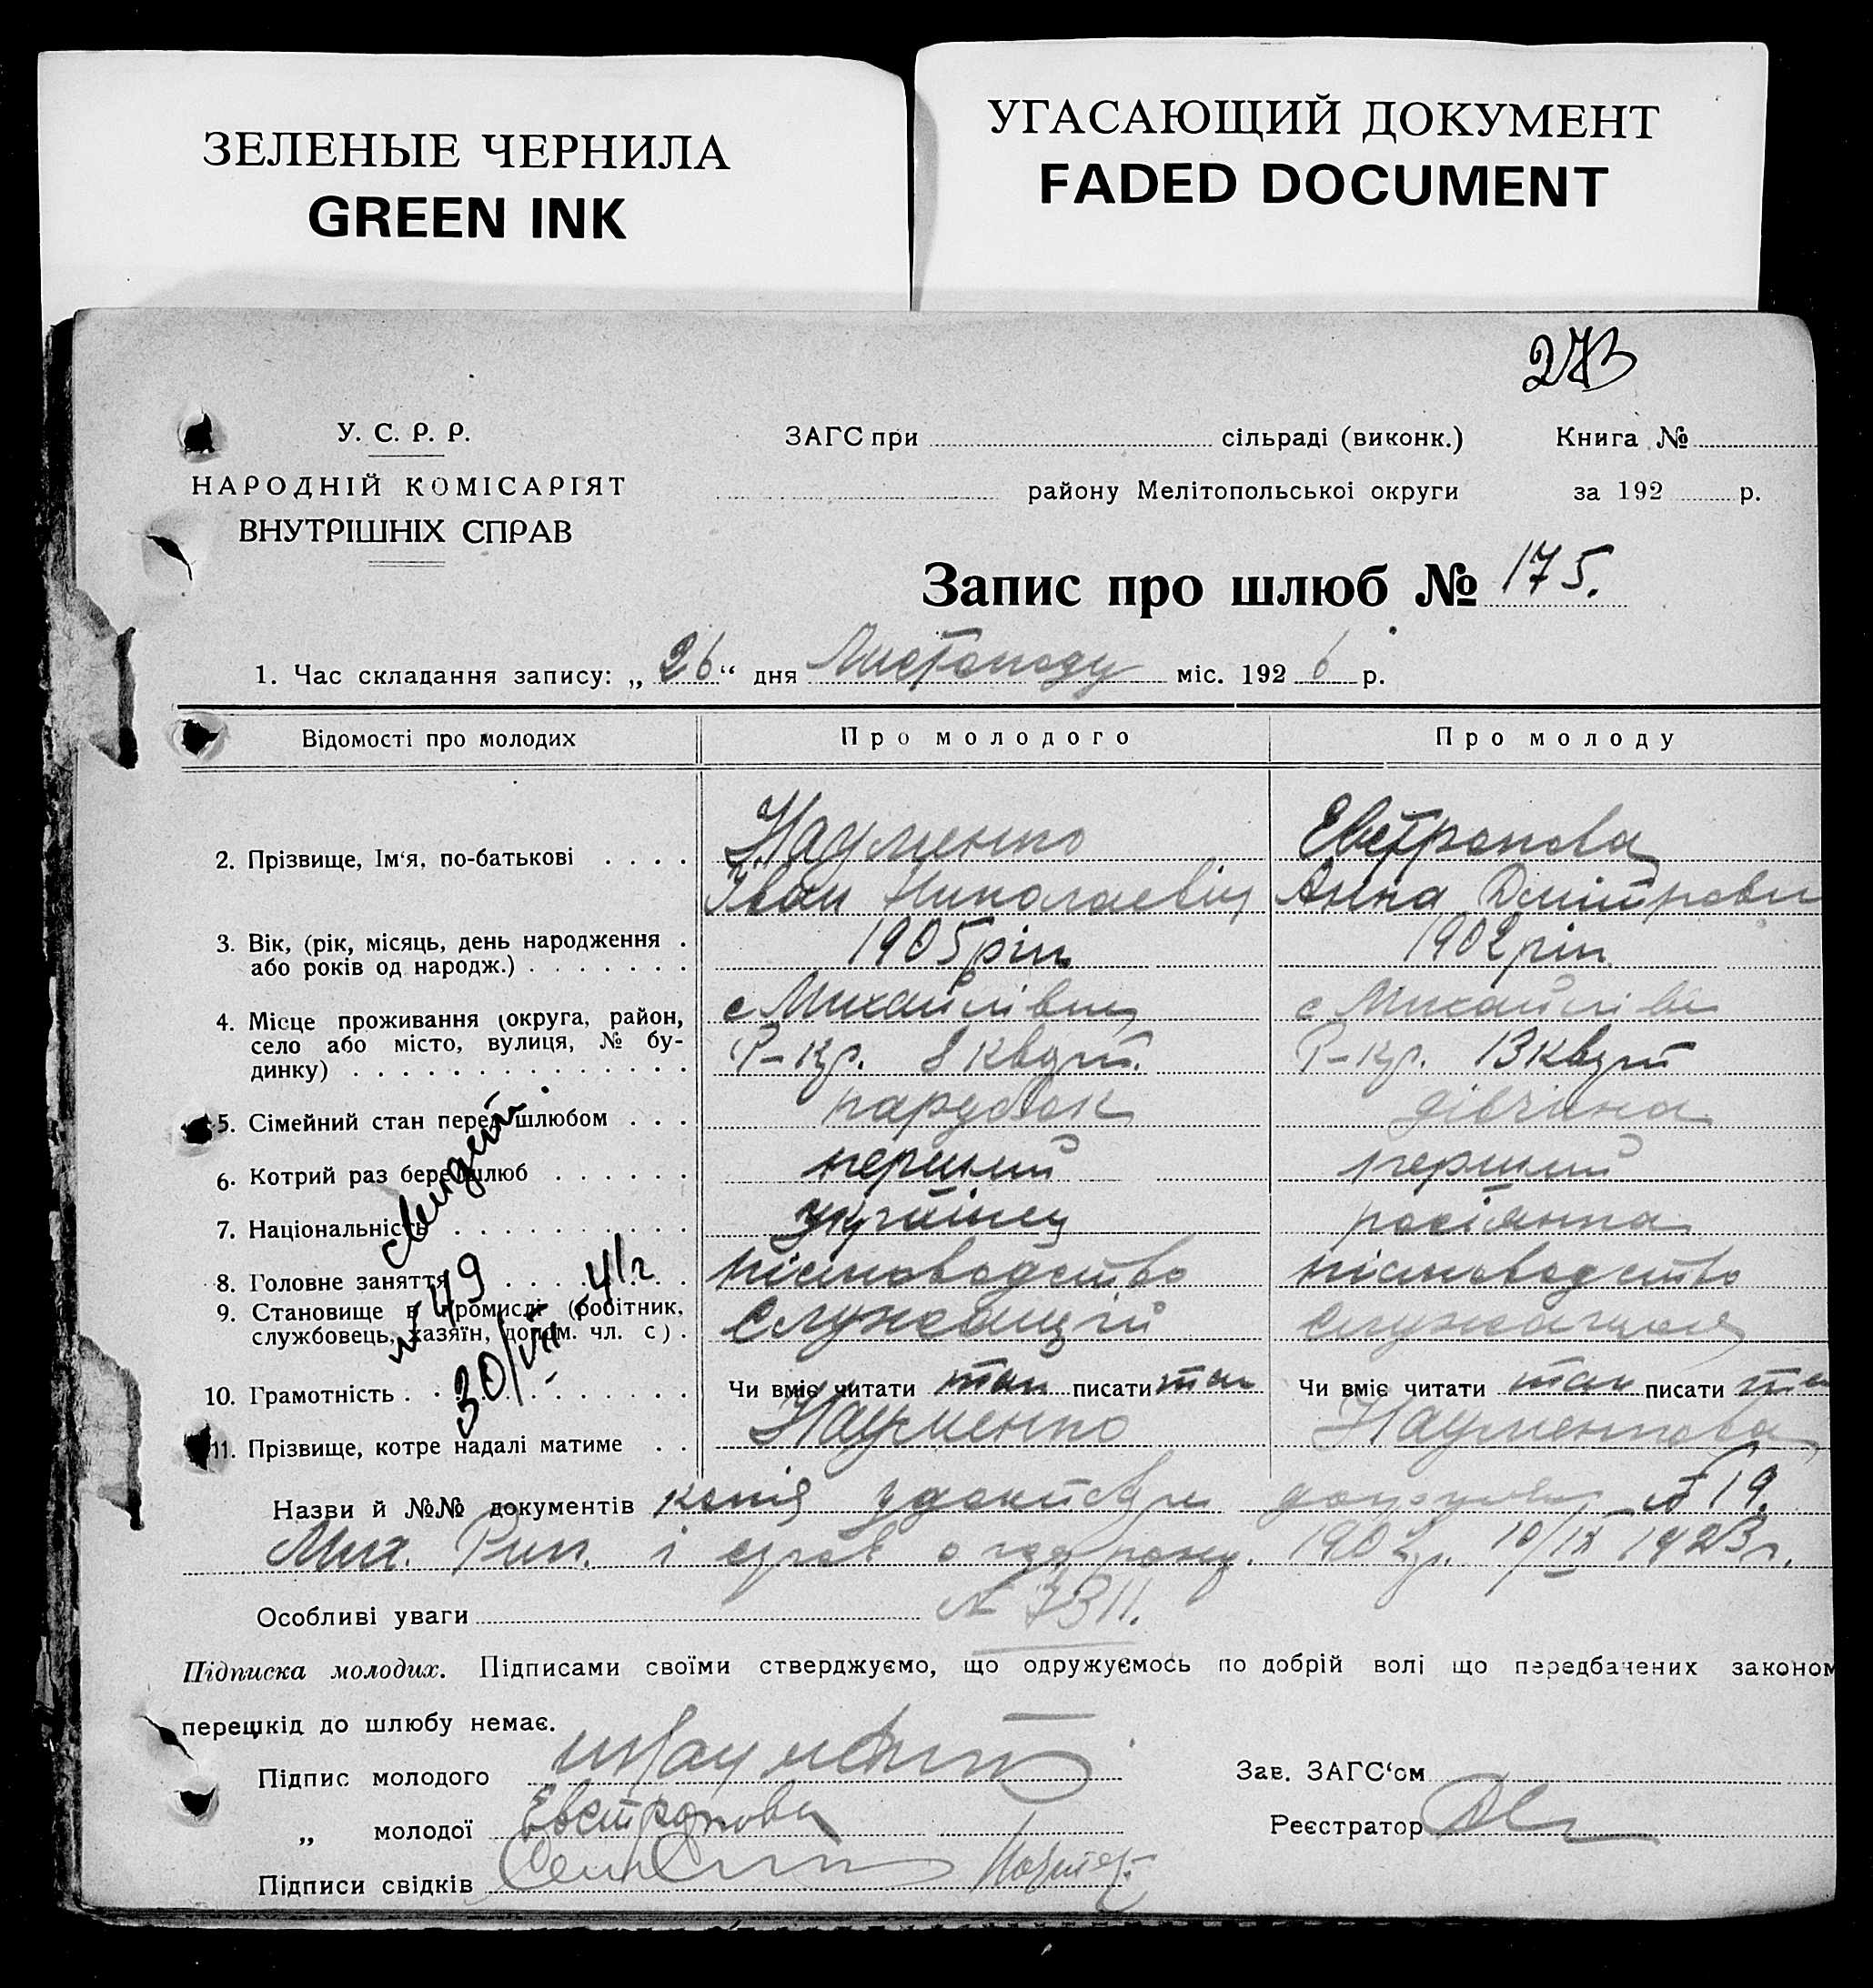 ЗЕЛЕНЫЕ ЧЕРНИЛА
GREEN INK
УГАСАЮЩИЙ ДОКУМЕНТ
FADED DOCUMENT
273
У. С. Р. Р.
НАРОДНІЙ КОМІСАРІЯТ
ВНУТРІШНІХ СПРАВ
ЗАГС при сільраді (виконк.) Книга №
району Мелітопольської округи за 192 р.
Запис про шлюб № 175.
1. Час складання запису: „ 26 “ дня Листопаду міс. 192 6 р.
Відомості про молодих Про молодого Про молоду
2. Прізвище, Ім‘я, по-батькові Науменко Евстропова
Іван Николаевіч Анна Дмітровн
3. Вік, (рік, місяць, день народження 1905 рік 1902 рік
або років од народж.)
4. Місце проживання (округа, район, с Михайлівка с Михайлівк
село або місто, вулиця, № бу- Р-кр. 8 кварт. Р-кр. 13 кварт
динку)
5. Сімейний стан перед шлюбом парубок дівчина
6. Котрий раз бере шлюб перший перший
7. Національність українец росіянка
8. Головне заняття
9. Становище в промислі (робітник, Служащій Служащая
службовець, хазяїн, допом. чл. с).
№ 49 41г
30/VII
10. Грамотність Чи вміє читати так писати так Чи вміє читати так писати та
11. Прізвище, котре надалі матиме Науменко Науменкова
Назви й №№ документів копія № 19.
Мих. Рик. і 1902р. 10/IX 1923г.
Особливі уваги № 7311.
Підписка молодих. Підписами своїми стверджуємо, що одружуємось по добрій волі що передбачених законом
перешкід до шлюбу немає.
Підпис молодого Науменко Зав. ЗАГС‘ом
„ молодої Евстропова Реєстратор
Підписи свідків